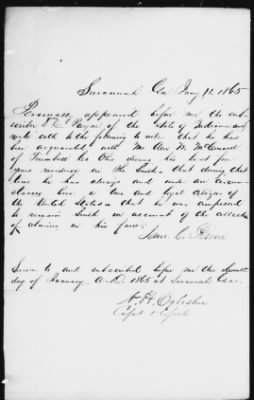 Savannah Ga Jany 11. 1865
Personally appeared before me the sub-
scriber C. Payne of the State of Indiana and
made oath to the following to wit: that he has
been acquainted with Mr Alex W. McConnell
of Trumbull Co Ohio during his last four
years residence in the South & that during that
time he has always and under all circum-
stances been a true and loyal citizen of
the United States & that he was compelled
to remain South on account of the
of in his favor.
C.
Sworn to and subscribed before me this eleventh
day of January A.D. 1865 at Savannah Geo.
A. H. Oglesbee
Capt &